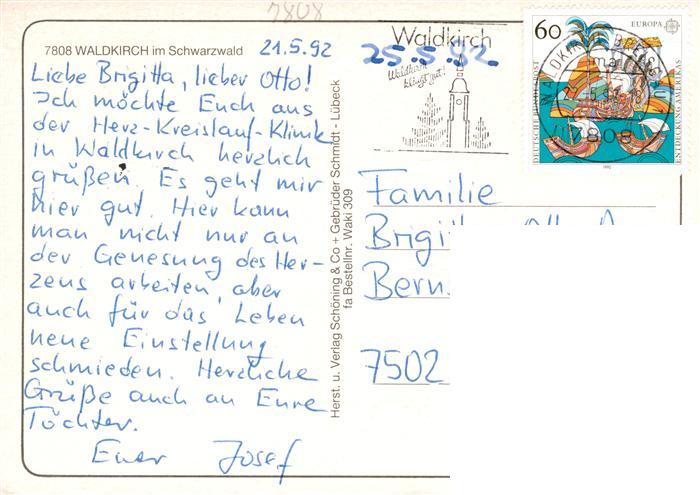 7808
7808 WALDKIRCH im Schwarzwald
21.5.92
Liebe Brigitta, lieber Otto!
Ich möchte Euch aus
der Herz-Kreislauf-Klinik
in Waldkirch herzlich
grüßen. Es geht mir
hier gut. Hier kann
man nicht nur an
der Genesung des Her-
zens arbeiten, aber
auch für das Leben
neue Einstellung
schmieden. Herzliche
Grüße auch an Eure
Töchter.
Euer Josef
Herst. u. Verlag Schöning & Co + Gebrüder Schmidt - Lübeck
fa Bestellnr. Waki 309
Waldkirch
25.5.92
Waldkirch
klingt gut!
60
EUROPA
DEUTSCHE BUNDESPOST
ENTDECKUNG AMERIKAS
1992
WALDKIRCH, BREISGAU
7808
Familie
Brigi
Bern
7502